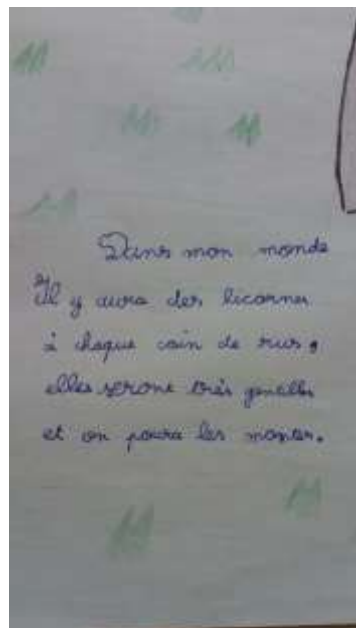 Dans mon monde
Il y aura des licornes
à chaque coin de rues,
elles seront très gentilles
et on poura les monter.